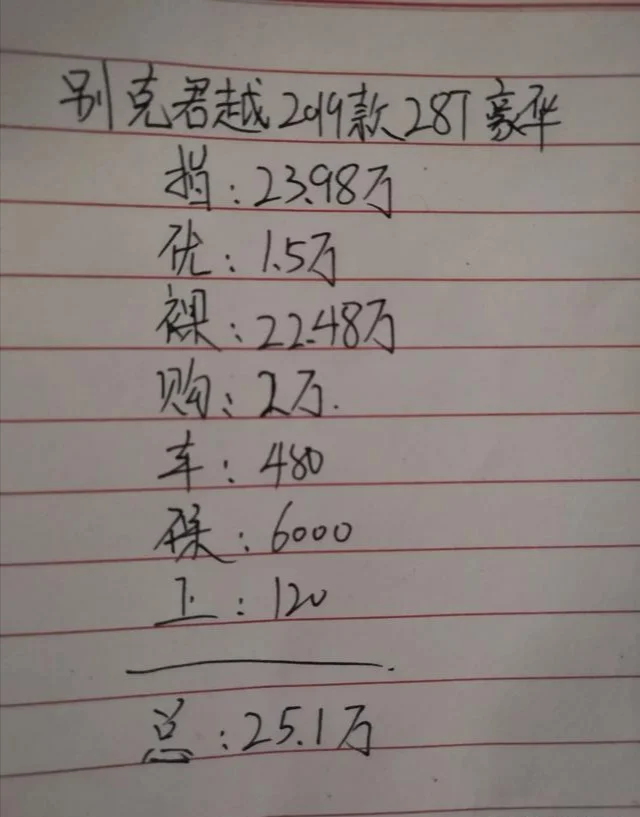 别克君越2019款28T豪华
指:23.98万
优:1.5万
裸:22.48万
购:2万.
车:480
保:6000
上:120
总:25.1万